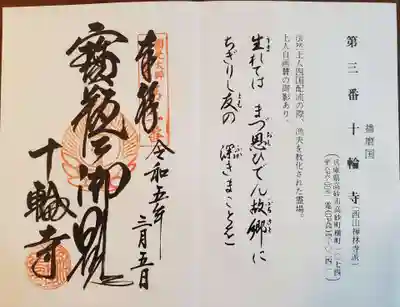 播磨国
第三番 十輪寺(西山禅林寺派)
兵庫県高砂市高砂町横町一〇七四
法然上人四国配流の際、漁夫を教化された霊場。
上人自画讃の御影あり。
生れては まづ思ひでん故郷に
ちぎりし友の 深きまことを
奉拝 令和五年三月五日
御影
十輪寺